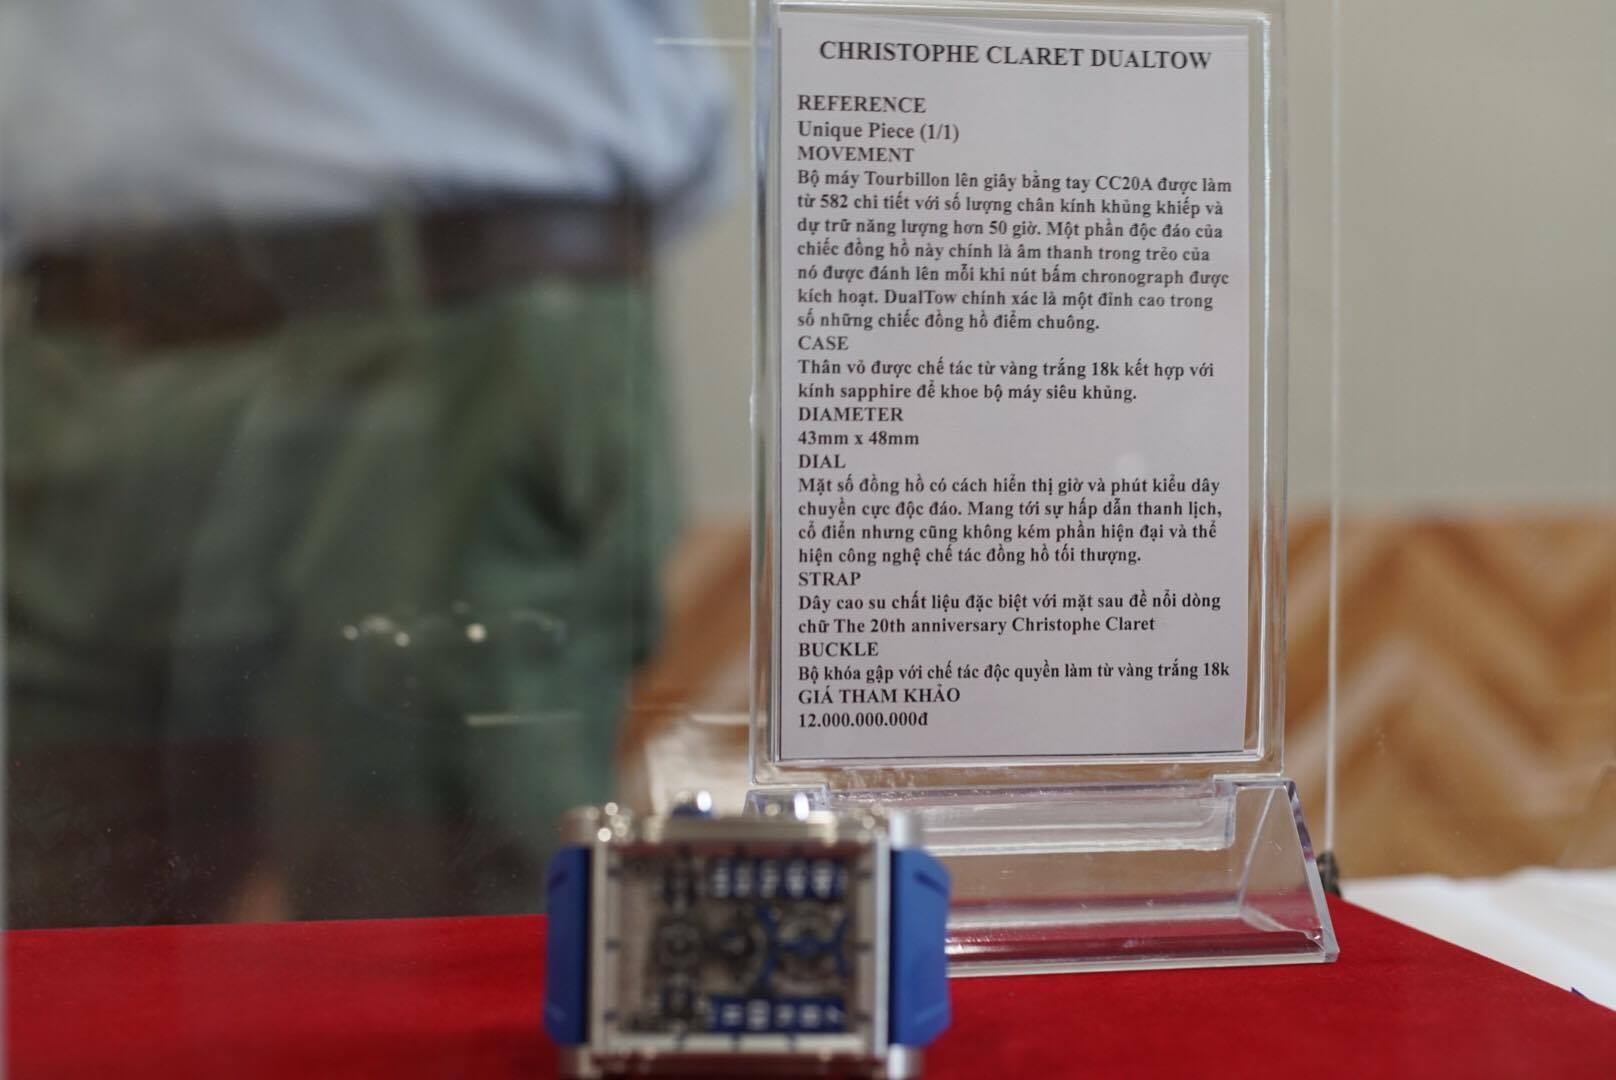 CHRISTOPHE CLARET DUALTOW
REFERENCE
Unique Piece (1/1)
MOVEMENT
Bộ máy Tourbillon lên giây bằng tay CC20A được làm
từ 582 chi tiết với số lượng chân kính khủng khiếp và
dự trữ năng lượng hơn 50 giờ. Một phần độc đáo của
chiếc đồng hồ này chính là âm thanh trong trẻo của
nó được đánh lên mỗi khi nút bấm chronograph được
kích hoạt. DualTow chính xác là một đỉnh cao trong
số những chiếc đồng hồ điểm chuông.
CASE
Thân vỏ được chế tác từ vàng trắng 18k kết hợp với
kính sapphire để khoe bộ máy siêu khủng.
DIAMETER
43mm x 48mm
DIAL
Mặt số đồng hồ có cách hiển thị giờ và phút kiểu dây
chuyền cực độc đáo. Mang tới sự hấp dẫn thanh lịch,
cổ điển nhưng cũng không kém phần hiện đại và thể
hiện công nghệ chế tác đồng hồ tối thượng.
STRAP
Dây cao su chất liệu đặc biệt với mặt sau đề nổi dòng
chữ The 20th anniversary Christophe Claret
BUCKLE
Bộ khóa gập với chế tác độc quyền làm từ vàng trắng 18k
GIÁ THAM KHẢO
12.000.000.000đ